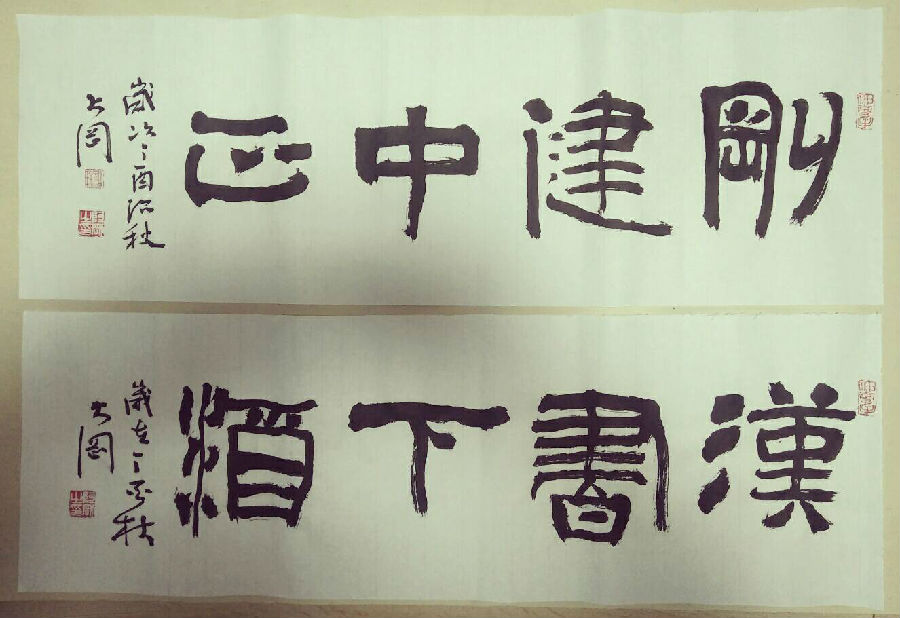 剛健中正
歲次丁酉初秋
大岡
漢書下酒
歲在丁酉秋
大岡